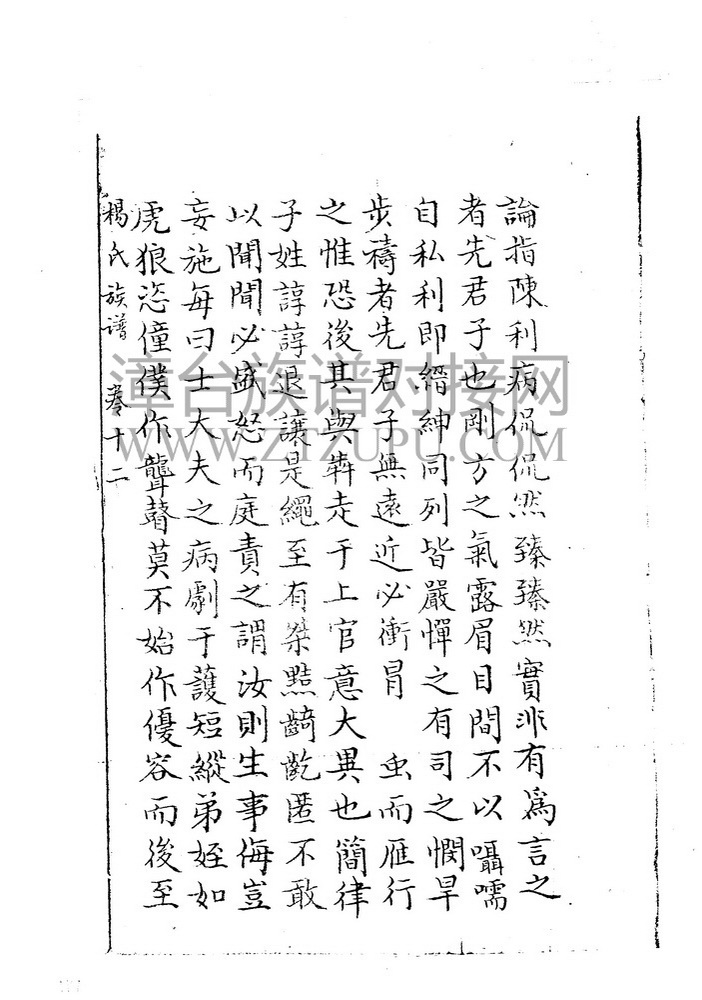 論指陳利病侃侃然臻臻然實非有為言之
者先君子也剛方之氣露眉目間不以囁嚅
自私利即縉紳同列皆嚴憚之有司之憫旱
步禱者先君子無遠近必衝冒 虫而雁行
之惟恐後其與犇走于上官意大異也簡律
子姓諄諄退讓是繩至有桀黠齮齕匿不敢
以聞聞必盛怒而庭責之謂汝則生事侮豈
妄施每曰士大夫之病劇于護短縱弟姪如
虎狼恣僮僕作聾瞽莫不始作優容而後至
楊氏族谱 卷十二
漳台族谱对接网
WWW.ZTZUPU.COM